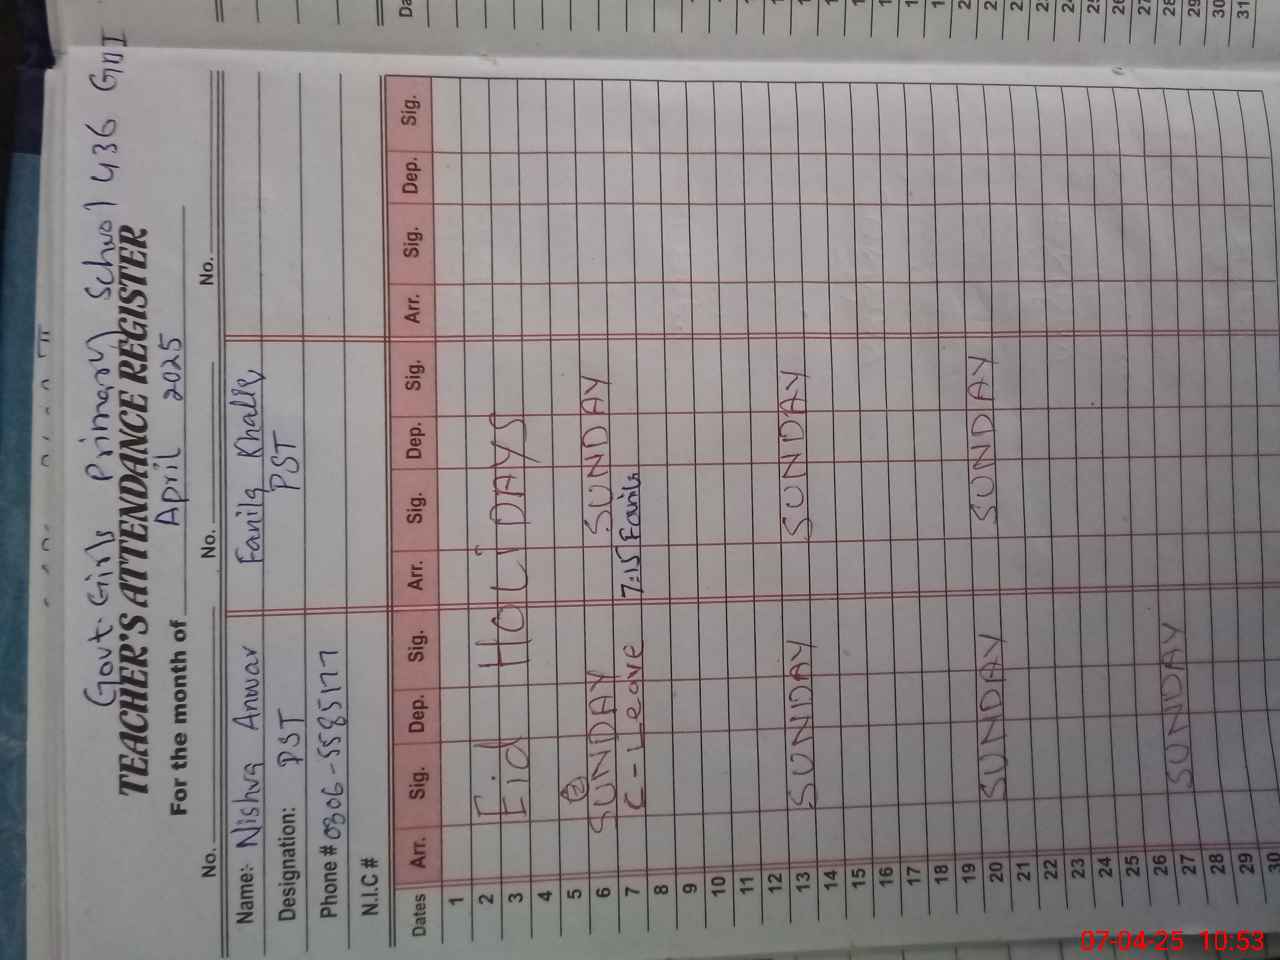 Govt Girls Primary School 436 GB I
TEACHER'S ATTENDANCE REGISTER
For the month of April 2025
No. No. No.
Name: Nishva Anwar Fanila Khalid
Designation: PST PST
Phone # 0306-5585177
N.I.C #
Dates Arr. Sig. Dep. Sig. Arr. Sig. Dep. Sig. Arr. Sig. Dep. Sig.
1
2
3 Eid HOLIDAYS
4
5
6 SUNDAY SUNDAY
7 C-Leave 7:15 Fanila
8
9
10
11
12
13 SUNDAY SUNDAY
14
15
16
17
18
19
20 SUNDAY SUNDAY
21
22
23
24
25
26
27 SUNDAY
28
29
30
07-04-25 10:53